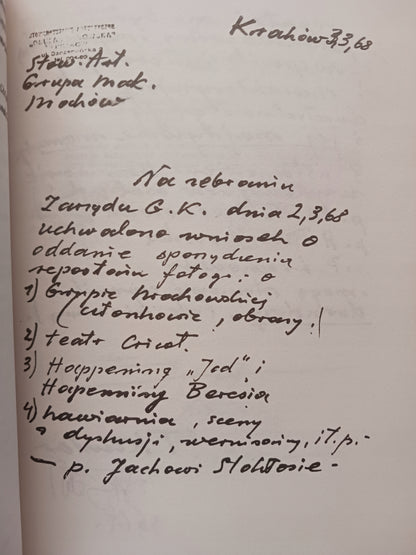 Kraków 3,3,68
STOWARZYSZENIE ARTYSTYCZNE
Stow. Art.
Grupa Mal.
Na zebraniu
Zarządu G.K. dnia 2,3,68
uchwalono wniosek o
oddanie sporządzenia
reportażu fotogr. o
1) Grupie Krakowskiej
(członkowie, obrazy)
2) teatr Cricot.
3) Happening „Jcd” i
Happening Beresia
4) kawiarnia, sceny
z dyskusji, wernisaży, i t.p.-
— p. Jackowi Stokłosie -